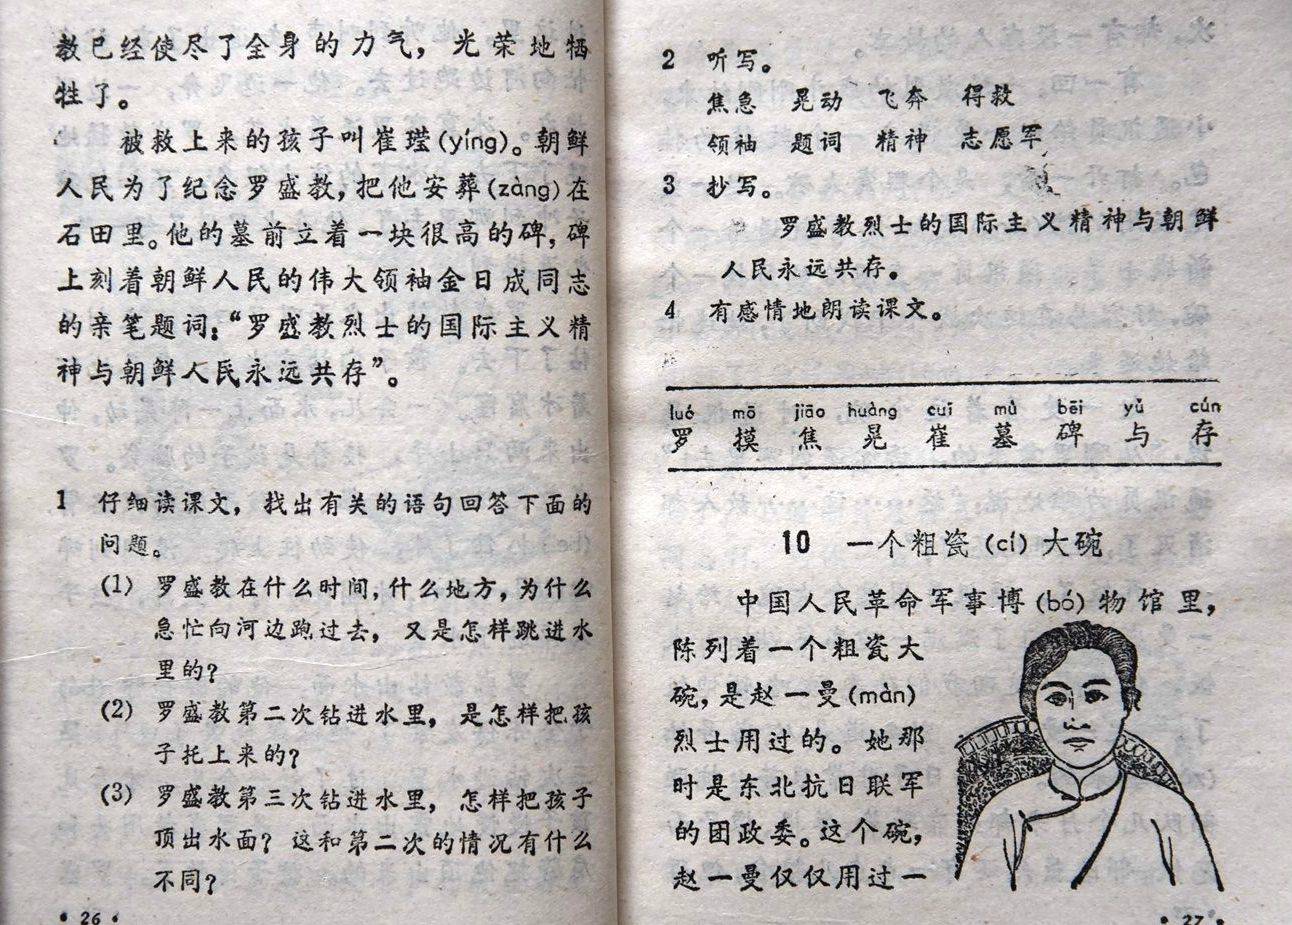 教已经使尽了全身的力气，光荣地牺
牲了。
被救上来的孩子叫崔滢(yíng)。朝鲜
人民为了纪念罗盛教，把他安葬(zàng)在
石田里。他的墓前立着一块很高的碑，碑
上刻着朝鲜人民的伟大领袖金日成同志
的亲笔题词：“罗盛教烈士的国际主义精
神与朝鲜人民永远共存”。
1 仔细读课文，找出有关的语句回答下面的
问题。
(1) 罗盛教在什么时间，什么地方，为什么
急忙向河边跑过去，又是怎样跳进水
里的？
(2) 罗盛教第二次钻进水里，是怎样把孩
子托上来的？
(3) 罗盛教第三次钻进水里，怎样把孩子
顶出水面？这和第二次的情况有什么
不同？
• 26 •
2 听写。
焦急 晃动 飞奔 得救
领袖 题词 精神 志愿军
3 抄写。
罗盛教烈士的国际主义精神与朝鲜
人民永远共存。
4 有感情地朗读课文。
luó mō jiāo huàng cuī mù bēi yǔ cún
罗 摸 焦 晃 崔 墓 碑 与 存
10 一个粗瓷(cí)大碗
中国人民革命军事博(bó)物馆里，
陈列着一个粗瓷大
碗，是赵一曼(màn)
烈士用过的。她那
时是东北抗日联军
的团政委。这个碗，
赵一曼仅仅用过一
• 27 •